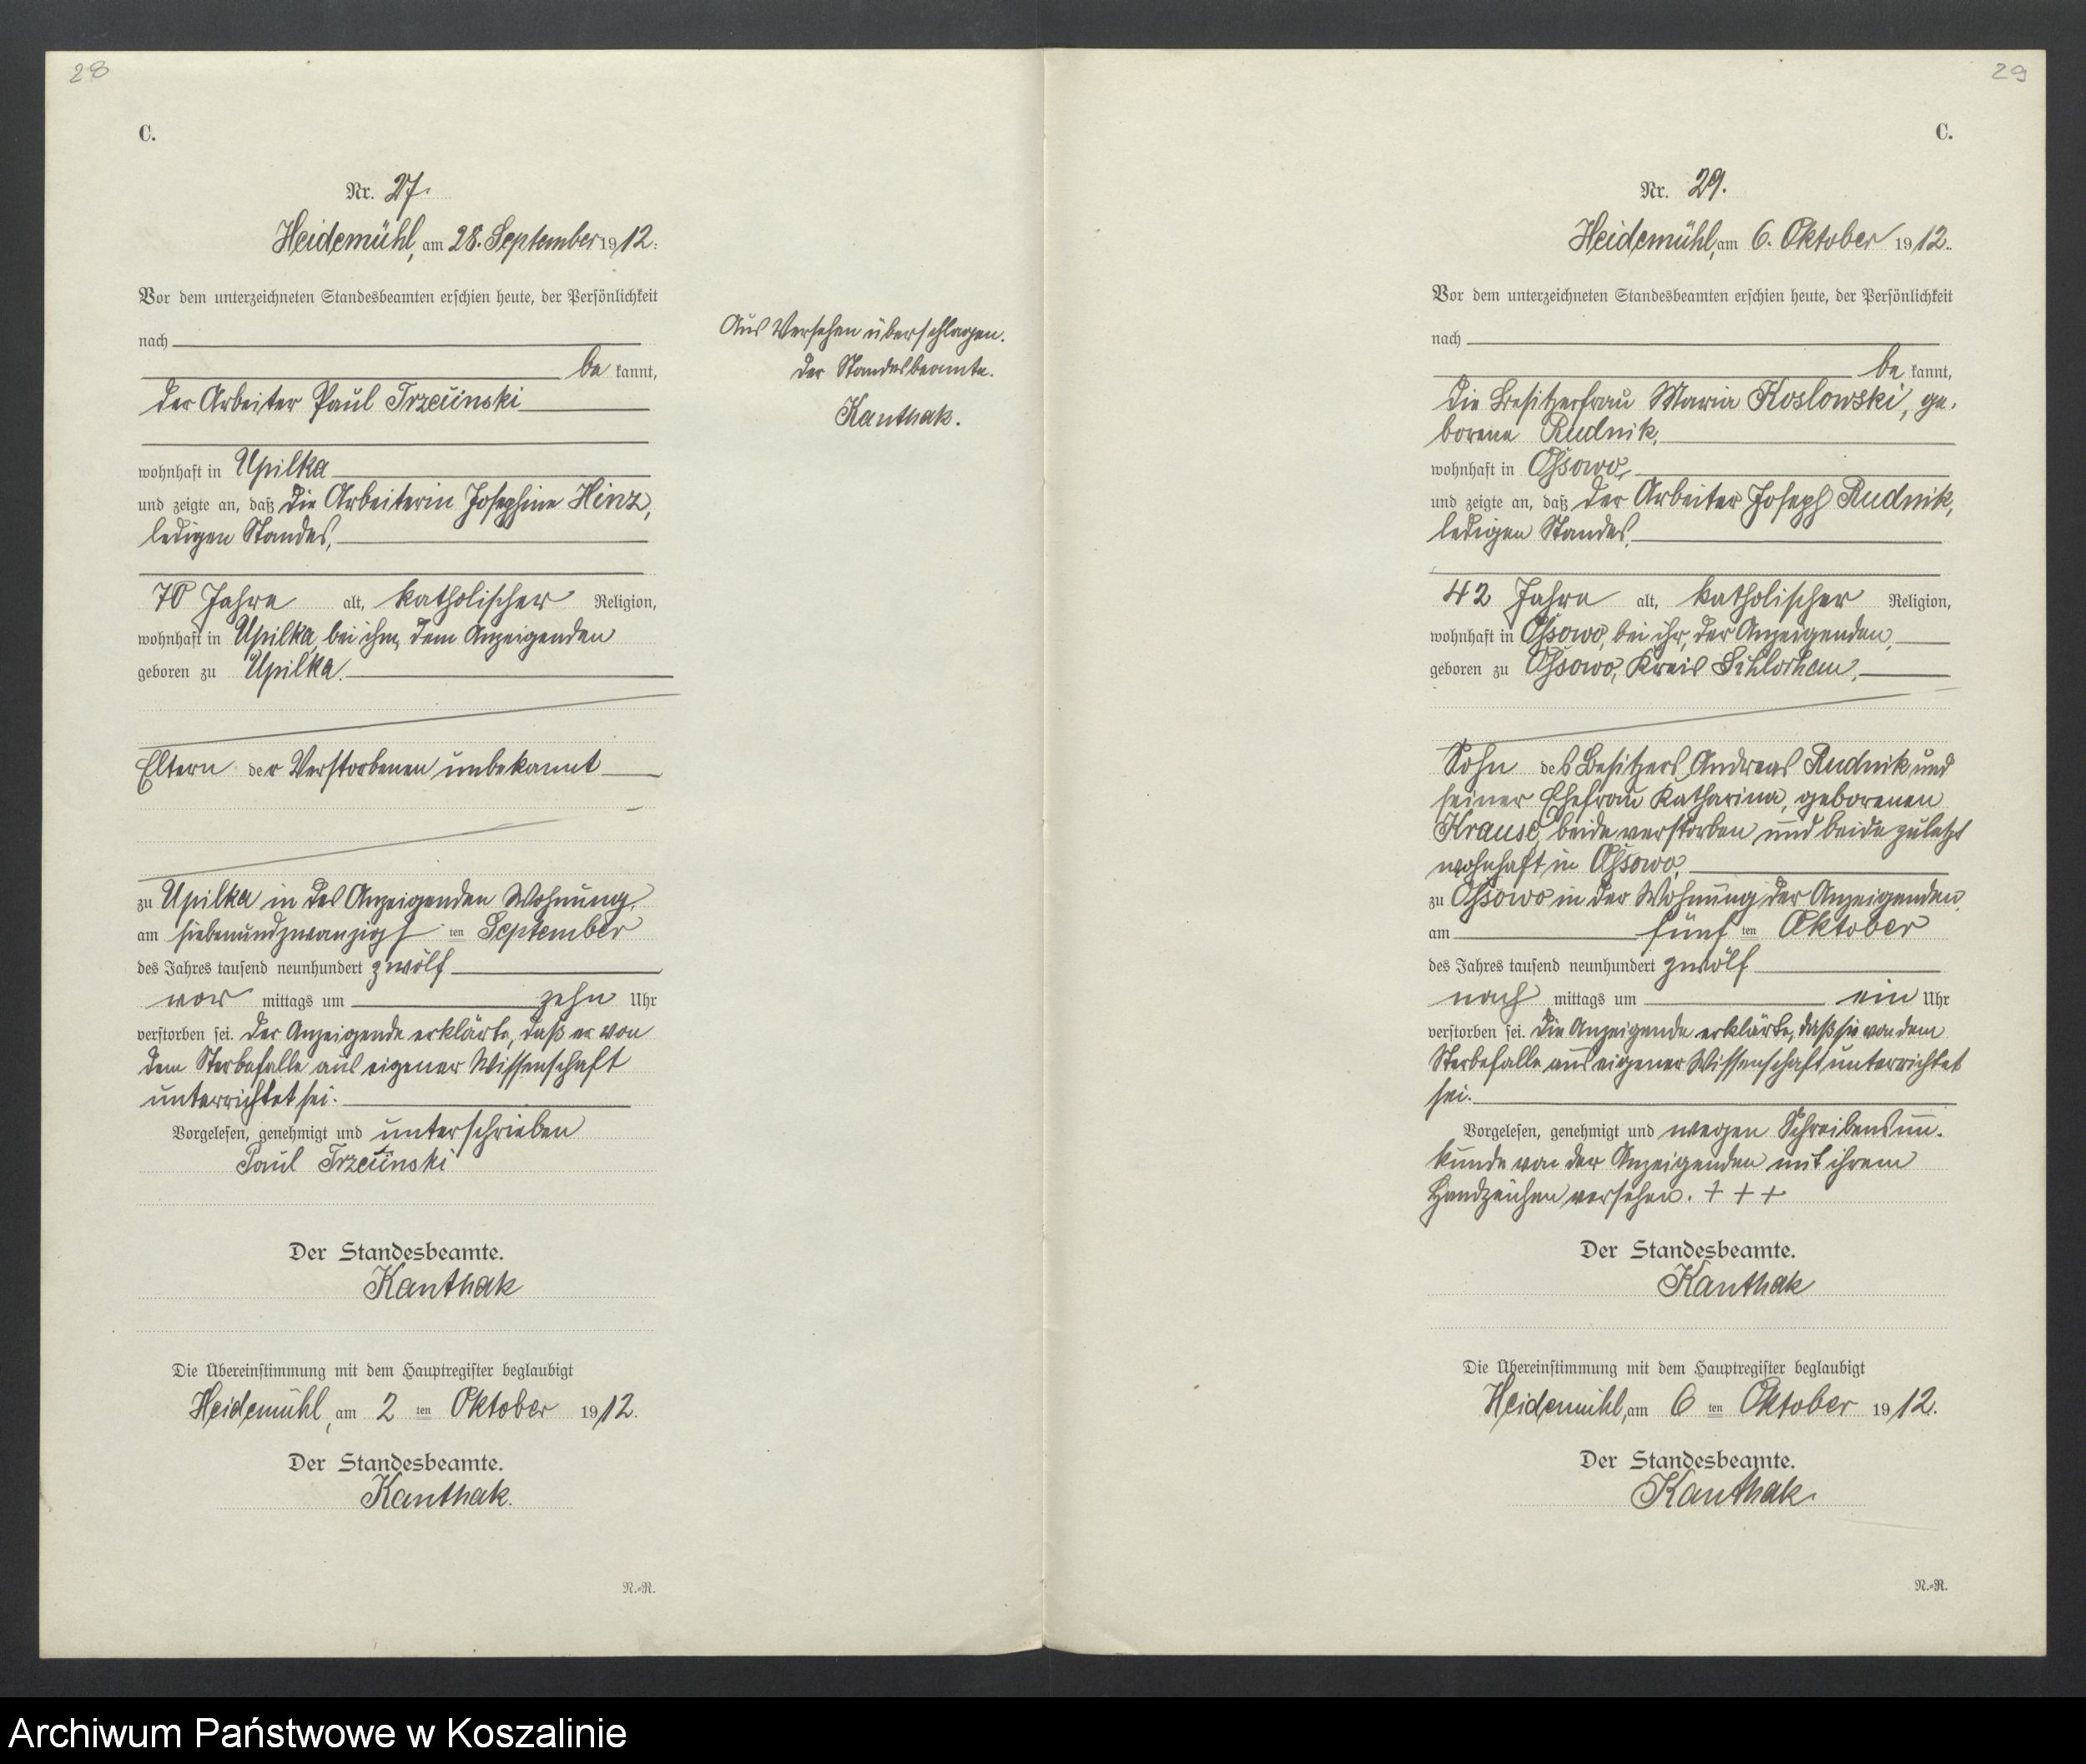 28
C.
Nr. 27.
Heidemühl, am 28. September 1912.
Vor dem unterzeichneten Standesbeamten erschien heute, der Persönlichkeit
nach
be kannt,
der Arbeiter Paul Trzcinski
wohnhaft in Upilka
und zeigte an, daß die Arbeiterin Josephine Hinz,
ledigen Standes,
70 Jahre alt, katholischer Religion,
wohnhaft in Upilka, bei ihm, dem Anzeigenden
geboren zu Upilka.
Eltern der Verstorbenen unbekannt
zu Upilka in des Anzeigenden Wohnung,
am siebenundzwanzigsten September
des Jahres tausend neunhundert zwölf
vor mittags um zehn Uhr
verstorben sei. Der Anzeigende erklärte, daß er von
dem Sterbefalle aus eigener Wissenschaft
unterrichtet sei.
Vorgelesen, genehmigt und unterschrieben
Paul Trzcinski
Der Standesbeamte.
Kanthak
Die Übereinstimmung mit dem Hauptregister beglaubigt
Heidemühl, am 2 ten Oktober 1912.
Der Standesbeamte.
Kanthak.
N.=R.
Aus Versehen überschlagen.
Der Standesbeamte.
Kanthak.
29
C.
Nr. 29.
Heidemühl, am 6. Oktober 1912.
Vor dem unterzeichneten Standesbeamten erschien heute, der Persönlichkeit
nach
be kannt,
die Besitzerfrau Maria Koslowski, ge-
borene Rudnik,
wohnhaft in Ossowo,
und zeigte an, daß der Arbeiter Joseph Rudnik,
ledigen Standes,
42 Jahre alt, katholischer Religion,
wohnhaft in Ossowo, bei ihr, der Anzeigenden,
geboren zu Ossowo, Kreis Schlochau,
Sohn des Besitzers Andreas Rudnik und
seiner Ehefrau Katharina, geborenen
Krause, beide verstorben und beide zuletzt
wohnhaft in Ossowo,
zu Ossowo in der Wohnung der Anzeigenden,
am fünf ten Oktober
des Jahres tausend neunhundert zwölf
nach mittags um ein Uhr
verstorben sei. Die Anzeigende erklärte, daß sie von dem
Sterbefalle aus eigener Wissenschaft unterrichtet
sei.
Vorgelesen, genehmigt und wegen Schreibensun-
kunde von der Anzeigenden mit ihrem
Handzeichen versehen. + + +
Der Standesbeamte.
Kanthak
Die Übereinstimmung mit dem Hauptregister beglaubigt
Heidemühl, am 6 ten Oktober 1912.
Der Standesbeamte.
Kanthak.
N.=R.
Archiwum Państwowe w Koszalinie